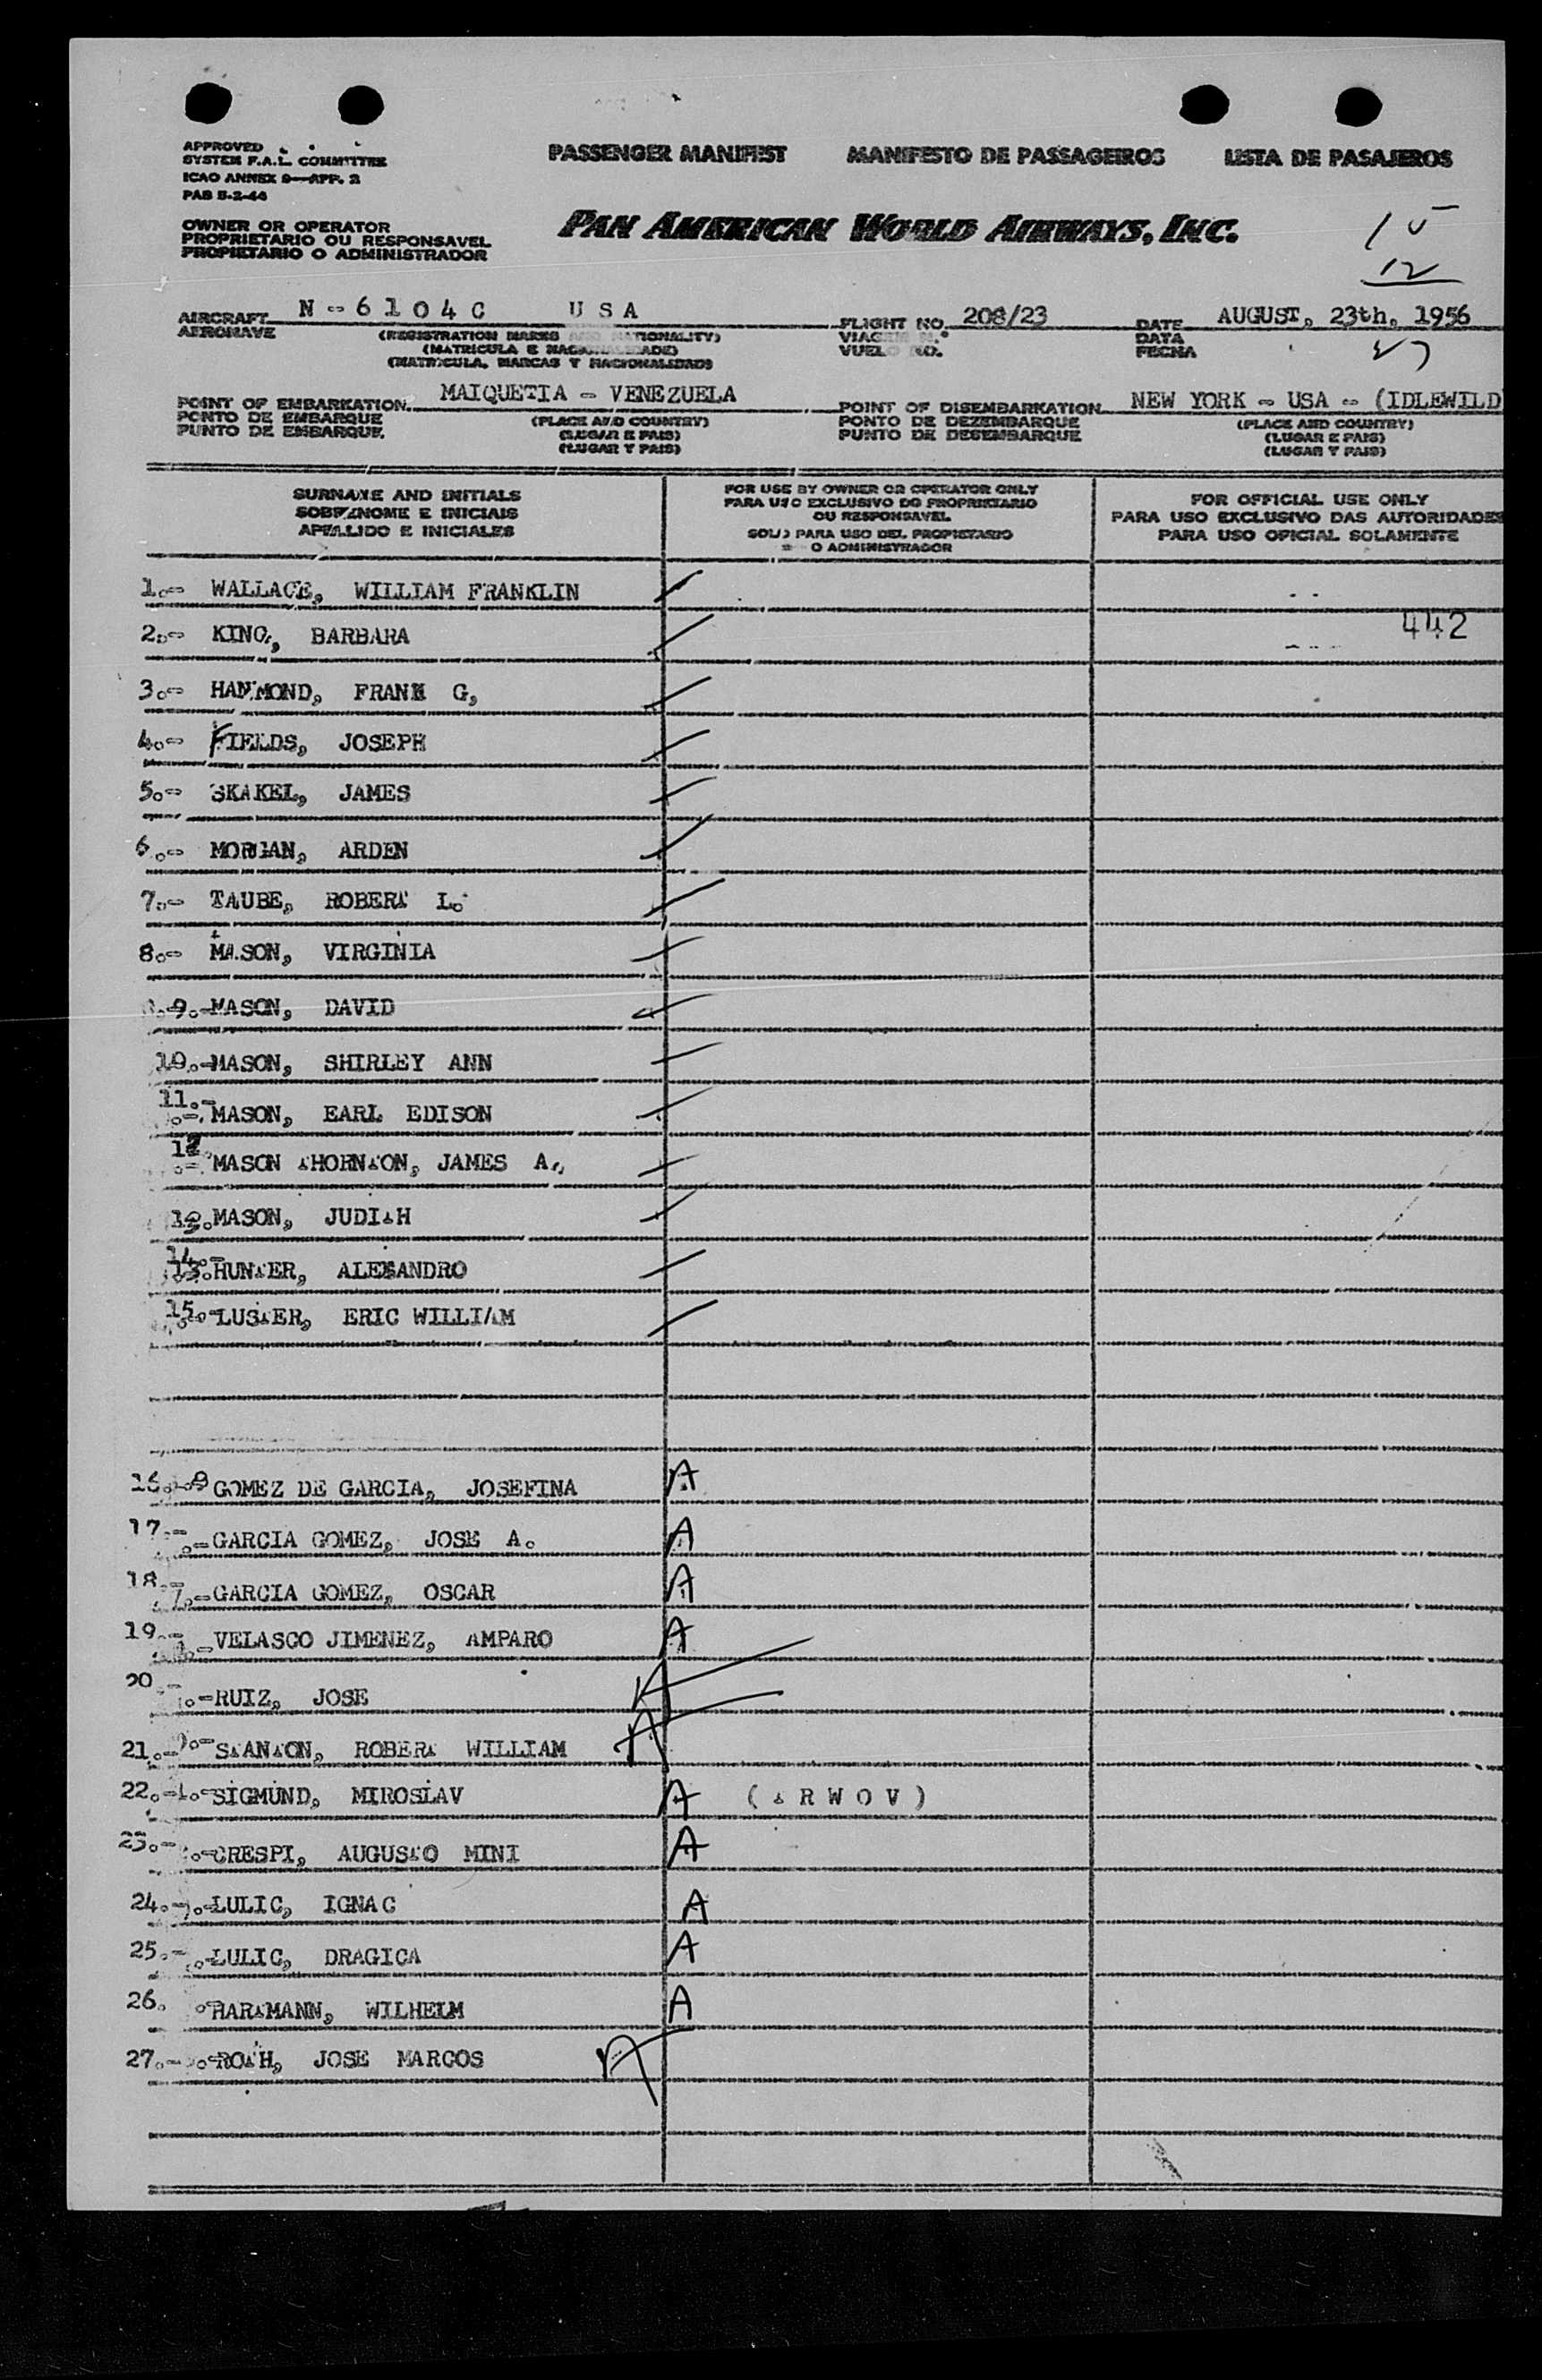 APPROVED
SYSTEM F.A.L. COMMITTEE
ICAO ANNEX 9—APP. 2
PAB
PASSENGER MANIFEST MANIFESTO DE PASSAGEIROS LISTA DE PASAJEROS
OWNER OR OPERATOR
PROPRIETARIO OU RESPONSAVEL
PROPIETARIO O ADMINISTRADOR
PAN AMERICAN WORLD AIRWAYS, INC.
15
12
AIRCRAFT N-6104C USA FLIGHT NO. 208/23 DATE AUGUST, 23th, 1956
AERONAVE (REGISTRATION MARKS AND NATIONALITY) VIAGEM N.° DATA
(MATRICULA E NACIONALIDADE) VUELO NO. FECHA
(MATRICULA, MARCAS Y NACIONALIDAD)
27
POINT OF EMBARKATION MAIQUETIA - VENEZUELA POINT OF DISEMBARKATION NEW YORK - USA - (IDLEWILD
PONTO DE EMBARQUE (PLACE AND COUNTRY) PONTO DE DEZEMBARQUE (PLACE AND COUNTRY)
PUNTO DE EMBARQUE. (LUGAR E PAIS) PUNTO DE DESEMBARQUE (LUGAR E PAIS)
(LUGAR Y PAIS) (LUGAR Y PAIS)
SURNAME AND INITIALS
SOBRENOME E INICIAIS
APELLIDO E INICIALES
FOR USE BY OWNER OR OPERATOR ONLY
PARA USO EXCLUSIVO DO PROPRIETARIO
OU RESPONSAVEL
SOLO PARA USO DEL PROPIETARIO
O ADMINISTRADOR
FOR OFFICIAL USE ONLY
PARA USO EXCLUSIVO DAS AUTORIDADES
PARA USO OFICIAL SOLAMENTE
1.- WALLACE, WILLIAM FRANKLIN
2.- KING, BARBARA 442
3.- HAMMOND, FRANK G,
4.- FIELDS, JOSEPH
5.- SKAKEL, JAMES
6.- MORGAN, ARDEN
7.- TAUBE, ROBERT L.
8.- MASON, VIRGINIA
9.- MASON, DAVID
10.- MASON, SHIRLEY ANN
11.- MASON, EARL EDISON
12. MASON THORNTON, JAMES A.,
13. MASON, JUDITH
14.- HUNTER, ALEXANDRO
15.- LUSTER, ERIC WILLIAM
16.- GOMEZ DE GARCIA, JOSEFINA A
17.- GARCIA GOMEZ, JOSE A. A
18.- GARCIA GOMEZ, OSCAR A
19.- VELASCO JIMENEZ, AMPARO A
20.- RUIZ, JOSE A
21.- STANTON, ROBERT WILLIAM A
22.- SIGMUND, MIROSLAV A (TRWOV)
23.- CRESPI, AUGUSTO MINI A
24.- LULIC, IGNAC A
25.- LULIC, DRAGICA A
26. HARTMANN, WILHELM A
27.- ROTH, JOSE MARCOS A